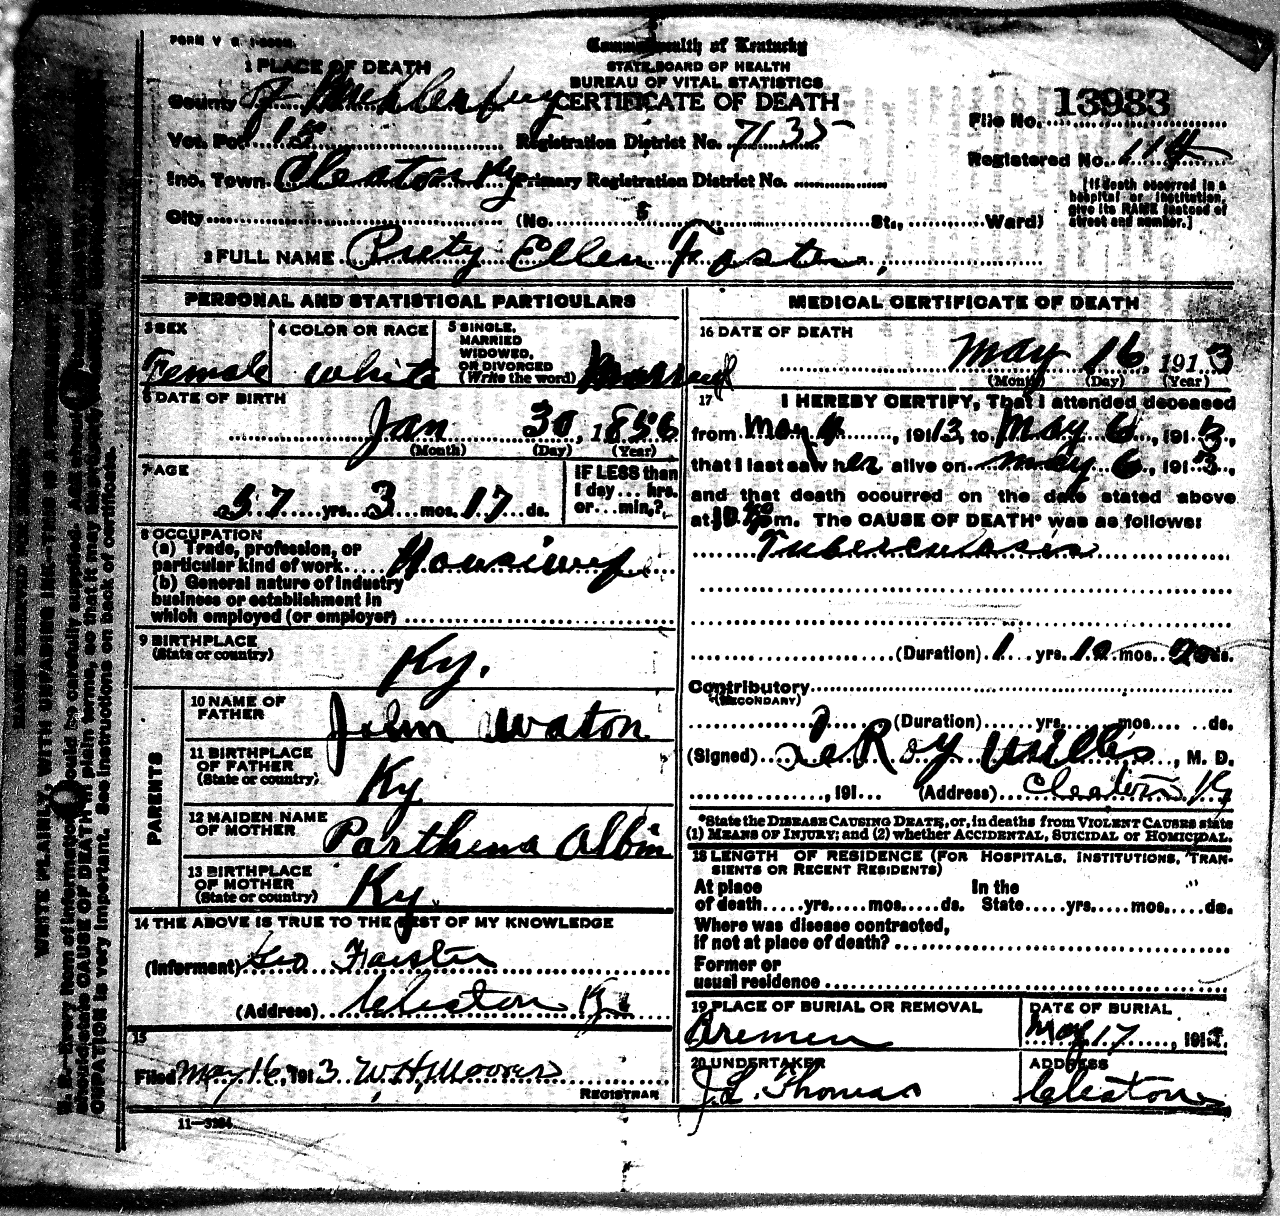 Commonwealth of Kentucky
STATE BOARD OF HEALTH
BUREAU OF VITAL STATISTICS
CERTIFICATE OF DEATH
1 PLACE OF DEATH
County
Vot. Pct. 15 Registration District No. 7135
File No. 13983
Registered No. 114
Inc. Town Cleaton Ky Primary Registration District No.
[If death occurred in a
hospital or institution,
give its NAME instead of
street and number.]
City (No. St., Ward)
2 FULL NAME Ellen Foster
PERSONAL AND STATISTICAL PARTICULARS
3 SEX
Female
4 COLOR OR RACE
white
5 SINGLE,
MARRIED
WIDOWED,
OR DIVORCED
(Write the word)
6 DATE OF BIRTH
Jan 30, 1856
(Month) (Day) (Year)
7 AGE
57 yrs. 3 mos. 17 ds.
IF LESS than
1 day... hrs.
or...min.?
8 OCCUPATION
(a) Trade, profession, or
particular kind of work
(b) General nature of industry
business or establishment in
which employed (or employer)
9 BIRTHPLACE
(State or country)
Ky.
PARENTS
10 NAME OF
FATHER
John Waton
11 BIRTHPLACE
OF FATHER
(State or country)
Ky
12 MAIDEN NAME
OF MOTHER
Parthena Albin
13 BIRTHPLACE
OF MOTHER
(State or country)
Ky.
14 THE ABOVE IS TRUE TO THE BEST OF MY KNOWLEDGE
(Informant) Geo Faister
(Address) Cleaton Ky
15
Filed May 16, 1913 W.H. Moores
REGISTRAR
11-3184
MEDICAL CERTIFICATE OF DEATH
16 DATE OF DEATH
May 16, 1913
(Month) (Day) (Year)
17 I HEREBY CERTIFY, That I attended deceased
from May, 1913, to May 6, 1913,
that I last saw her alive on May 6, 1913,
and that death occurred on the date stated above
at m. The CAUSE OF DEATH* was as follows:
Tuberculosis
(Duration) 1 yrs. 10 mos. ds.
Contributory
(SECONDARY)
(Duration) yrs. mos. ds.
(Signed) LeRoy Willis, M. D.
, 191 (Address) Cleaton Ky
*State the DISEASE CAUSING DEATH, or, in deaths from VIOLENT CAUSES state
(1) MEANS OF INJURY; and (2) whether ACCIDENTAL, SUICIDAL or HOMICIDAL.
18 LENGTH OF RESIDENCE (FOR HOSPITALS, INSTITUTIONS, TRAN-
SIENTS OR RECENT RESIDENTS)
At place
of death yrs. mos. ds.
In the
State yrs. mos. ds.
Where was disease contracted,
if not at place of death?
Former or
usual residence
19 PLACE OF BURIAL OR REMOVAL
Bremen
DATE OF BURIAL
May 17, 1913
20 UNDERTAKER
J.L. Thomas
ADDRESS
Cleaton